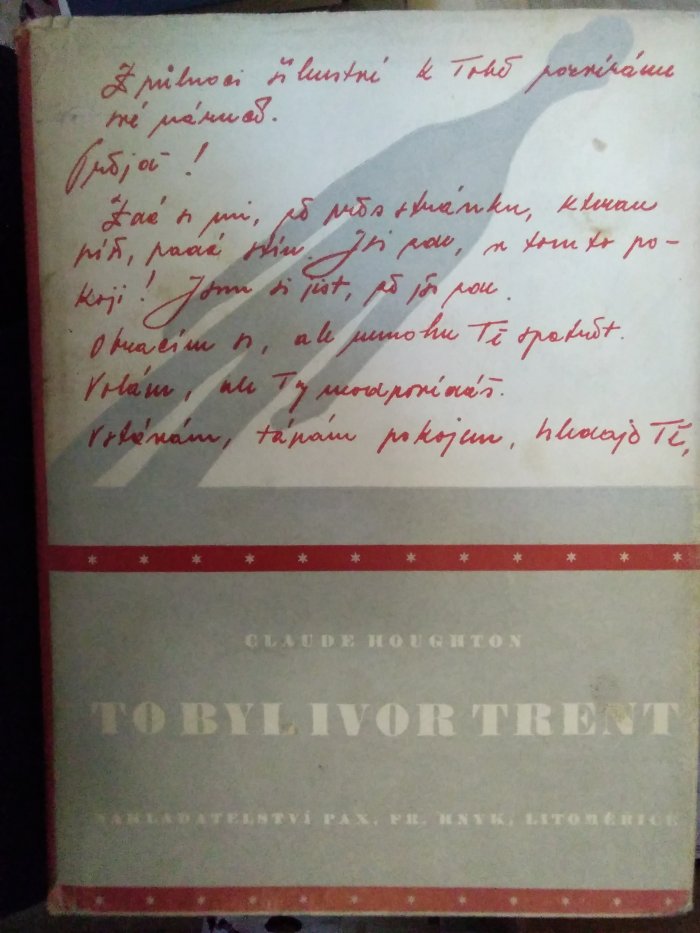 Z půlnoci šílenství k Tobě pozvíráme
své náruč.
Přijď!
Zdá se mi, že přes stránku, kterou
píši, padá stín. Jsi zde, v tomto po-
koji! Jsem si jist, že jsi zde.
Obracím se, ale nemohu Tě spatřit.
Volám, ale Ty neodpovídáš.
Vstávám, tápám pokojem, hledaje Tě,
CLAUDE HOUGHTON
TO BYL IVOR TRENT
NAKLADATELSTVÍ PAX, FR. HNYK, LITOMĚŘICE